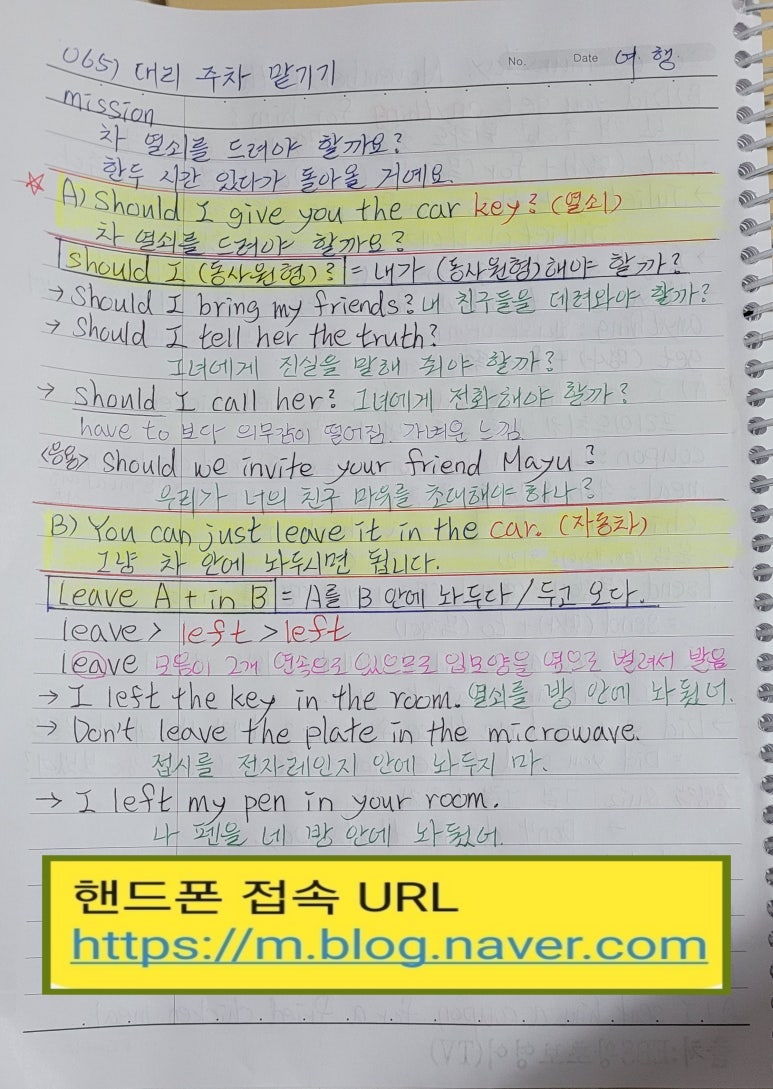 065) 대리 주차 맡기기 No. Date 여행.
mission
차 열쇠를 드려야 할까요?
한두 시간 있다가 돌아올 거예요.
☆ A) Should I give you the car key? (열쇠)
차 열쇠를 드려야 할까요?
should I (동사원형)? = 내가 (동사원형)해야 할까?
→ Should I bring my friends? 내 친구들을 데려와야 할까?
→ Should I tell her the truth?
그녀에게 진실을 말해 줘야 할까?
→ Should I call her? 그녀에게 전화해야 할까?
have to 보다 의무감이 떨어짐. 가벼운 느낌.
<응용> Should we invite your friend Mayu?
우리가 너의 친구 마유를 초대해야 하나?
B) You can just leave it in the car. (자동차)
그냥 차 안에 놔두시면 됩니다.
Leave A + in B = A를 B 안에 놔두다 / 두고 오다.
leave > left > left
leave 모음이 2개 연속으로 있으므로 입모양을 옆으로 벌려서 발음
→ I left the key in the room. 열쇠를 방 안에 놔뒀어.
→ Don't leave the plate in the microwave.
접시를 전자레인지 안에 놔두지 마.
→ I left my pen in your room.
나 펜을 네 방 안에 놔뒀어.
핸드폰 접속 URL
https://m.blog.naver.com